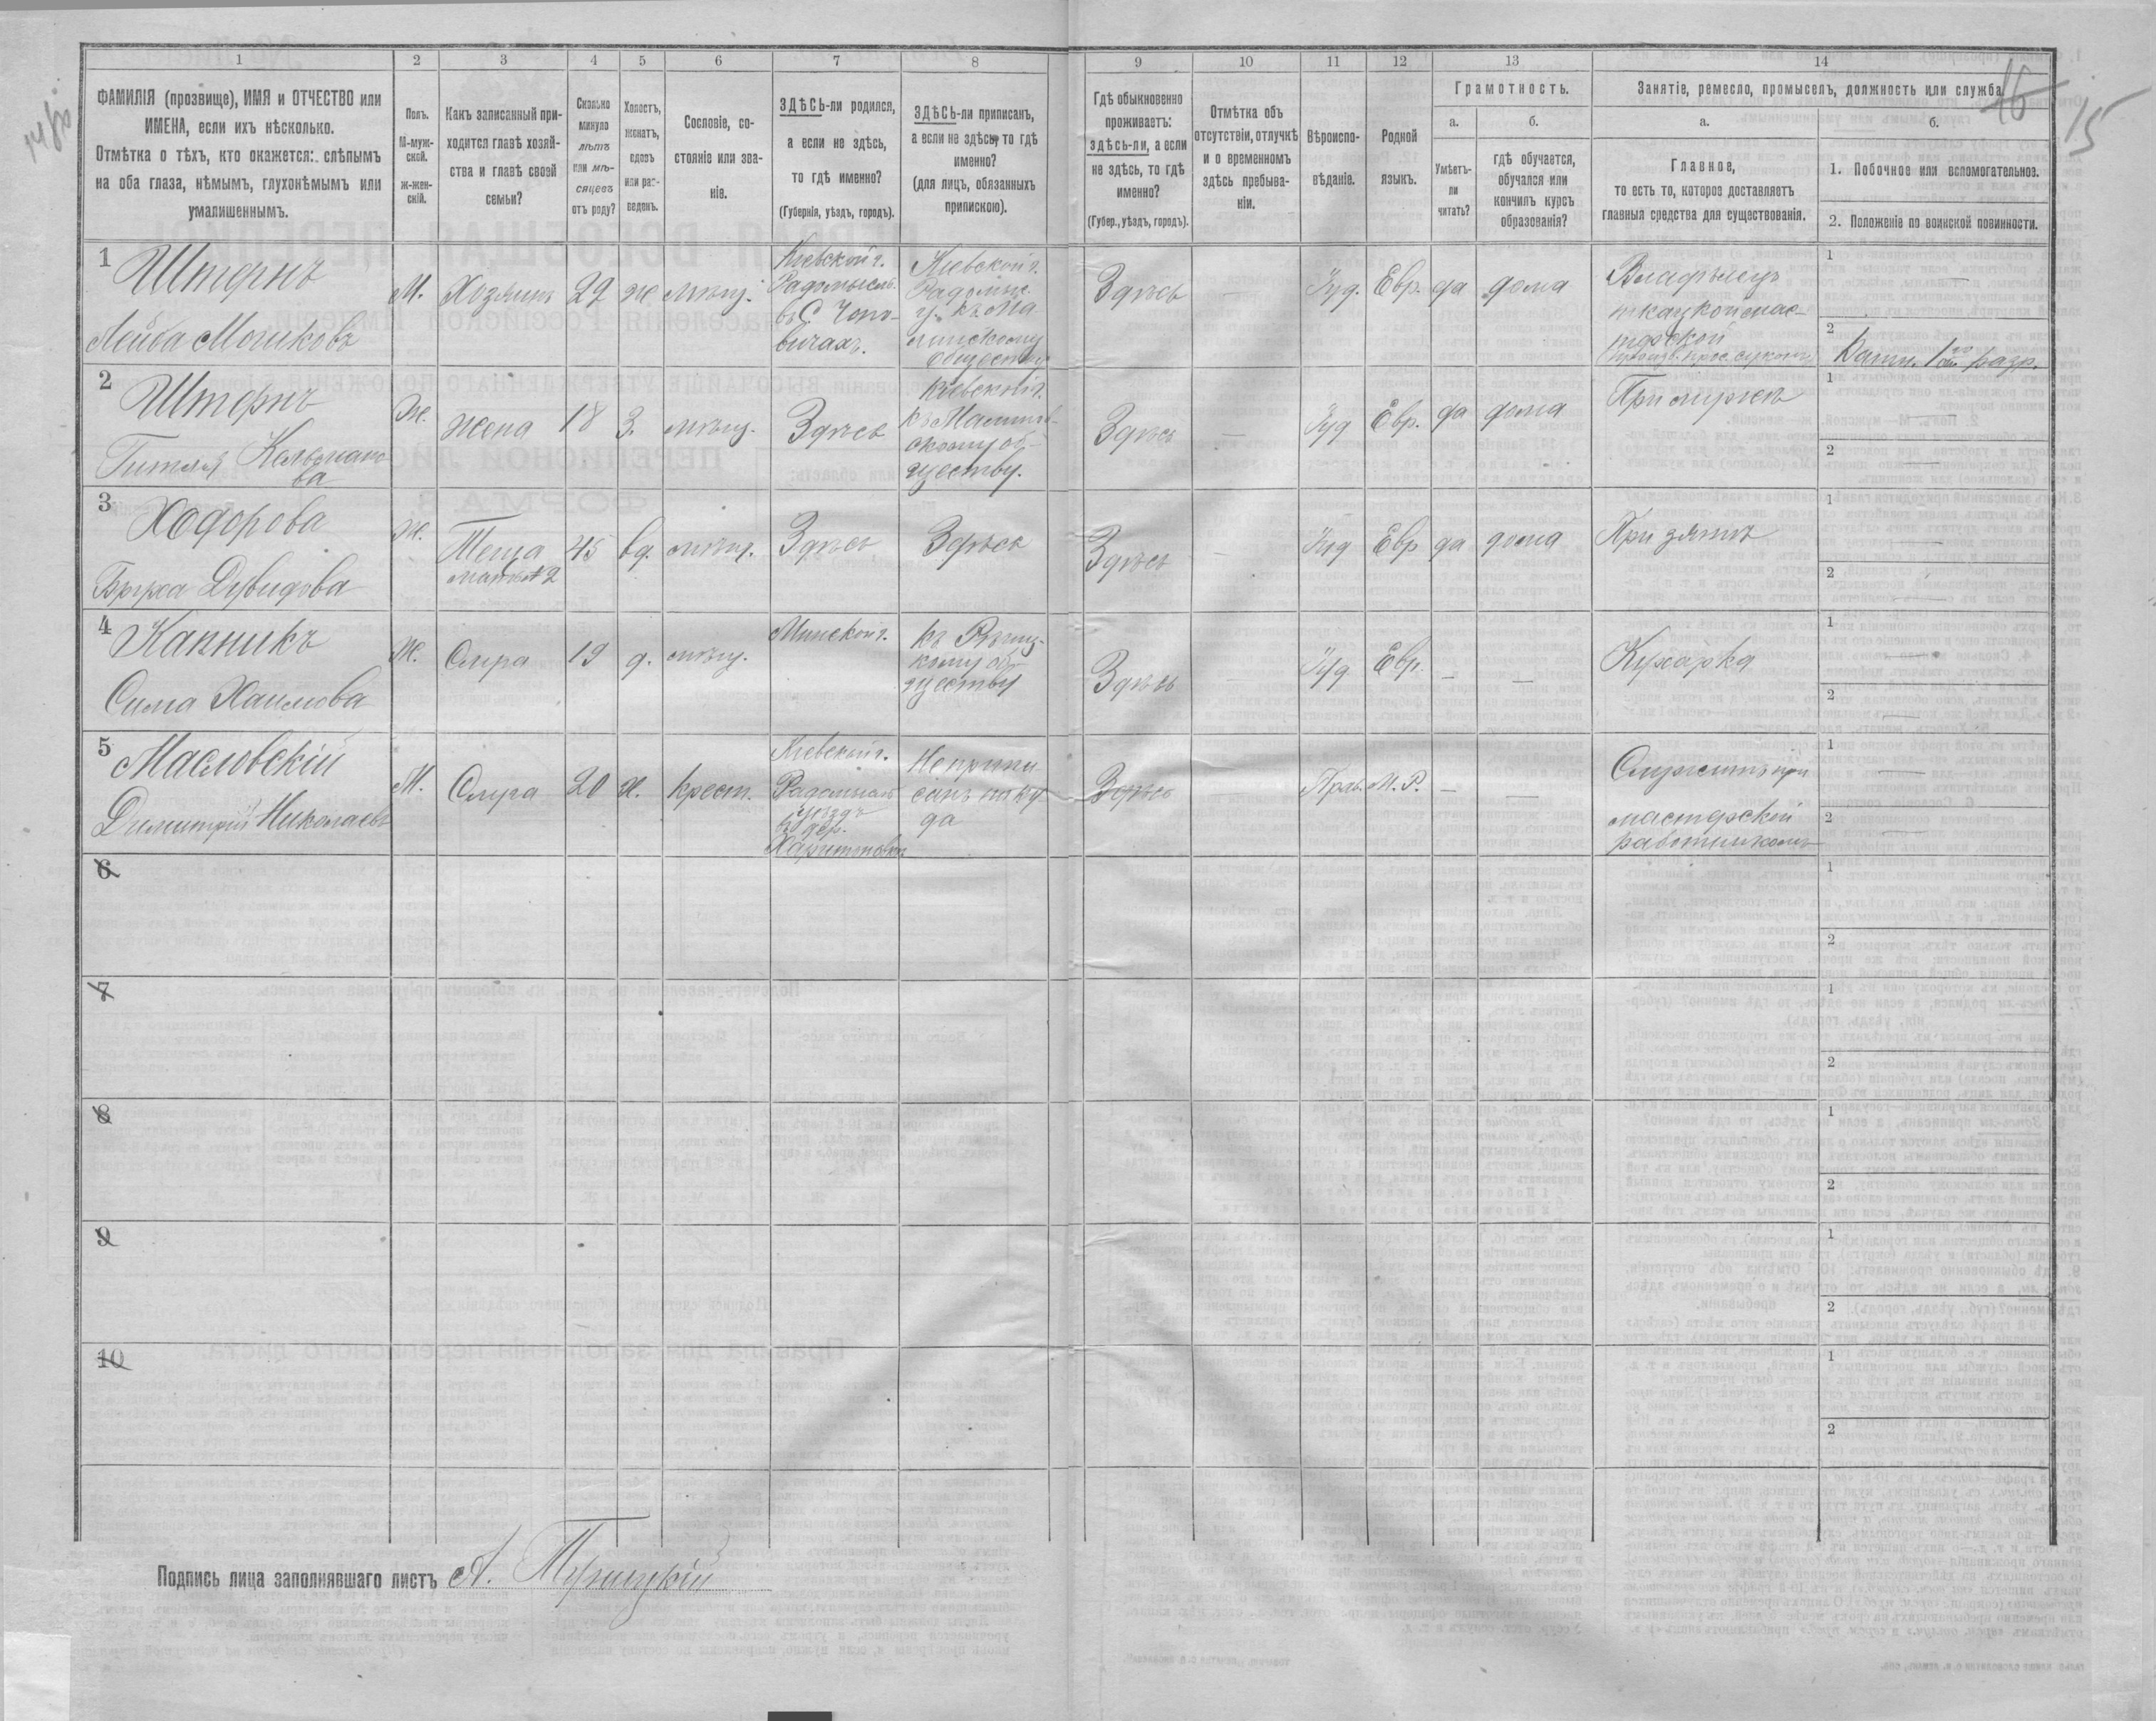 1 2 3 4 5 6 7 8 9 10 11 12 13 14
ФАМИЛІЯ (прозвище), ИМЯ и ОТЧЕСТВО или
ИМЕНА, если ихъ нѣсколько.
Отмѣтка о тѣхъ, кто окажется: слѣпымъ
на оба глаза, нѣмымъ, глухонѣмымъ или
умалишеннымъ.
Полъ.
М-муж-
ской.
ж-жен-
скій.
Какъ записанный при-
ходится главѣ хозяй-
ства и главѣ своей
семьи?
Сколько
минуло
лѣтъ
или мѣ-
сяцевъ
отъ роду?
Холостъ,
женатъ,
вдовъ
или раз-
веденъ.
Сословіе, со-
стояніе или зва-
ніе.
ЗДѢСЬ-ли родился,
а если не здѣсь,
то гдѣ именно?
(Губернія, уѣздъ, городъ).
ЗДѢСЬ-ли приписанъ,
а если не здѣсь, то гдѣ
именно?
(для лицъ, обязанныхъ
припискою).
Гдѣ обыкновенно
проживаетъ:
здѣсь-ли, а если
не здѣсь, то гдѣ
именно?
(Губер., уѣздъ, городъ).
Отмѣтка объ
отсутствіи, отлучкѣ
и о временномъ
здѣсь пребыва-
ніи.
Вѣроиспо-
вѣданіе.
Родной
языкъ.
Грамотность.
а.
Умѣетъ-
ли
читать?
б.
гдѣ обучается,
обучался или
кончилъ курсъ
образованія?
Занятіе, ремесло, промыселъ, должность или служба.
16
15
а.
Главное,
то есть то, которое доставляетъ
главныя средства для существованія.
б.
1. Побочное или вспомогательное.
2. Положеніе по воинской повинности.
1
Штернъ
Лейба Мошковъ
М.
Хозяинъ
22
ж
мѣщ.
Кіевской г.
Радомысль.
въ С. Чопо-
вичахъ.
Кіевской г.
Радомыс.
у. къ Ма
линскому
обществу
Здѣсь
—
Іуд.
Евр.
да
дома
Владѣлецъ
ткацкой мас-
терской
1 —
2
2
Штернъ
Гитля Кельманова
Ж.
жена
18
З.
мѣщ.
Здѣсь
Кіевской г.
къ Малин-
скому об-
ществу.
Здѣсь
—
Іуд
Евр.
да
дома
При мужѣ
1 —
2 —
3
Ходорова
Бруха Дувидова
Ж.
Теща
мать №2
45
вд.
мѣщ.
Здѣсь
Здѣсь
Здѣсь
—
Іуд
Евр
да
дома
При зятѣ
1 —
2 —
4
Капникъ
Сима Хаимова
Ж.
Слуга
19
д.
мѣщ.
Минской г.
къ Рѣчиц-
кому об-
ществу
Здѣсь
—
Іуд
Евр.
—
—
Кухарка
1 —
2 —
5
Масловскій
Димитрій Николаевъ
М.
Слуга
20
х.
крест.
Кіевской г.
Радомысль
уѣздъ
въ дер.
Не припи-
санъ нику
да
Здѣсь
—
Прав.
М. Р.
—
—
Служитъ при
мастерской
работникомъ
1 —
2 —
6
1
2
7
1
2
8
1
2
9
1
2
10
1
2
Подпись лица заполнявшаго листъ А.